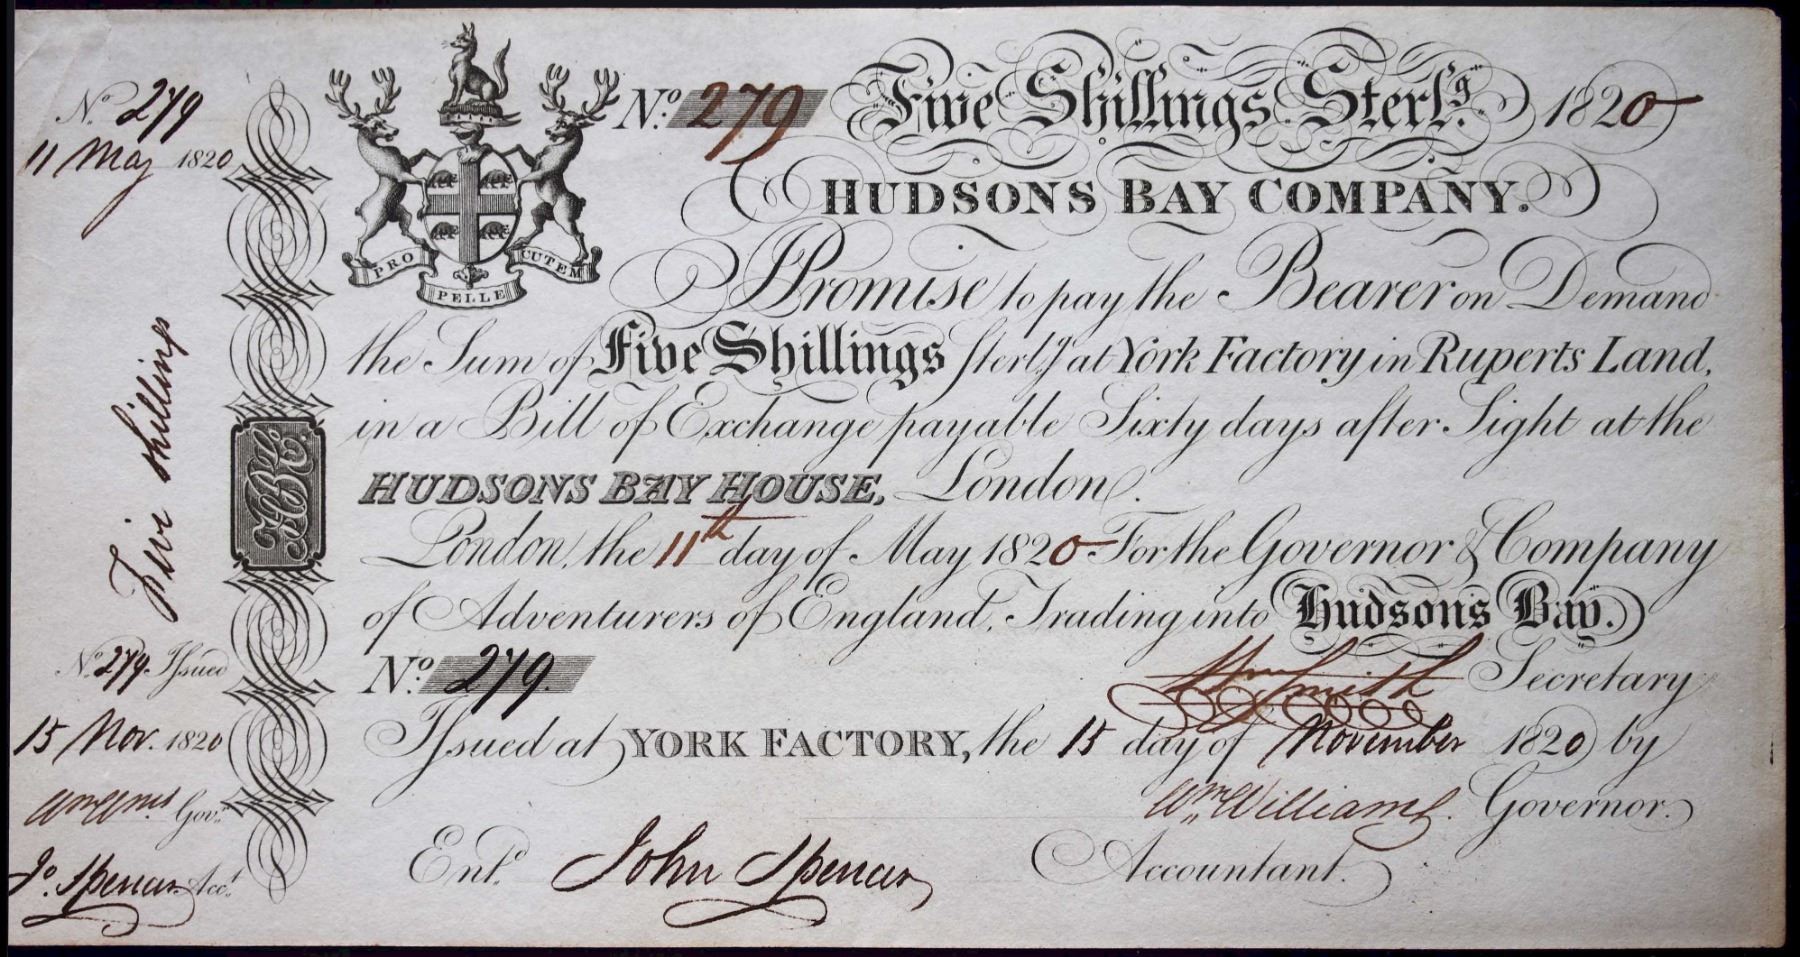 No. 279
11 May 1820
Five shillings
No. 279. Issued
15 Nov. 1820
Wm Wms. Govr.
Jo. Spencer Acct.
PRO PELLE CUTEM
HBCo.
No. 279 Five Shillings Sterlg. 1820
HUDSONS BAY COMPANY.
Promise to pay the Bearer on Demand
the Sum of Five Shillings Sterlg. at York Factory in Ruperts Land,
in a Bill of Exchange payable Sixty days after Sight at the
HUDSONS BAY HOUSE, London.
London, the 11th day of May 1820 For the Governor & Company
of Adventurers of England, Trading into Hudsons Bay.
No. 279. Wm Smith Secretary
Issued at YORK FACTORY, the 15 day of November 1820 by
Wm. Williams. Governor.
Entd. John Spencer Accountant.